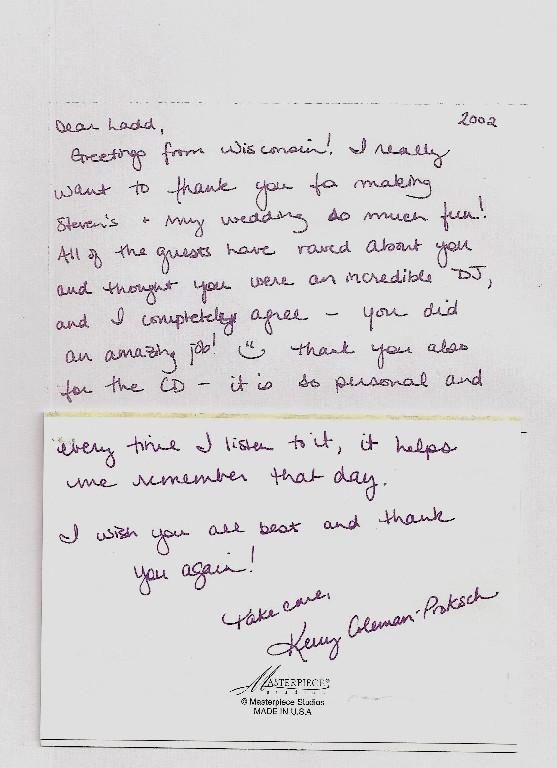 2002
Dear Ladd,
Greetings from Wisconsin! I really
want to thank you for making
Steven's + my wedding so much fun!
All of the guests have raved about you
and thought you were an incredible DJ,
and I completely agree - you did
an amazing job! Thank you also
for the CD - it is so personal and
every time I listen to it, it helps
me remember that day.
I wish you all best and thank
you again!
Take care,
Kerry Coleman-Proksch
MASTERPIECE
STUDIOS
© Masterpiece Studios
MADE IN U.S.A